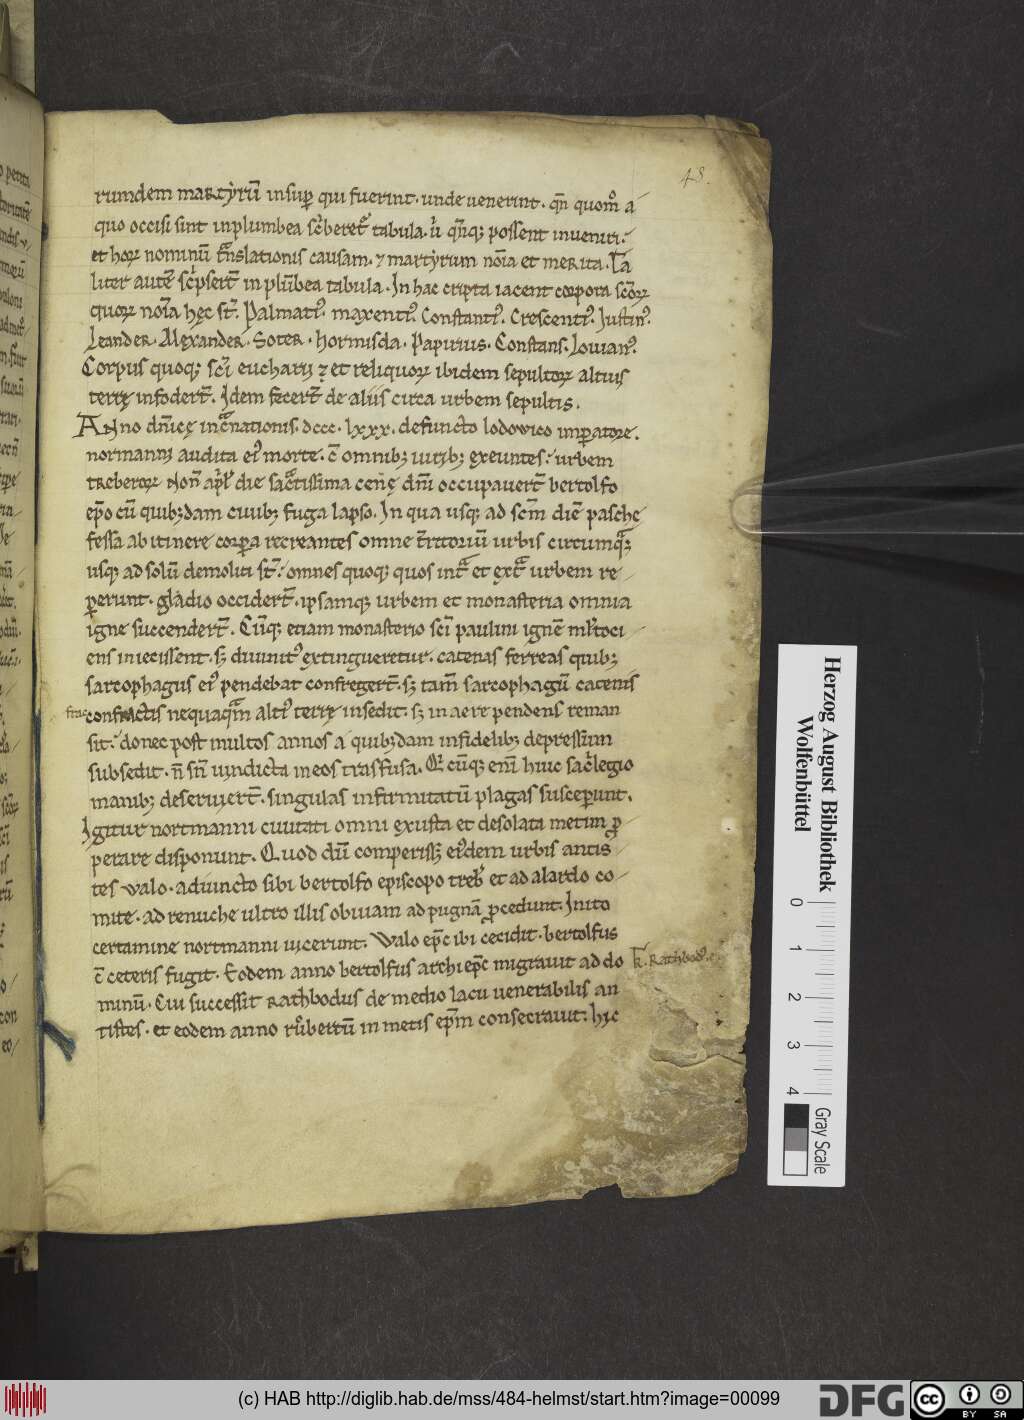 48.
rumdem martẏrū insup qui fuerint· unde uenerint· qn̄ quomͦ a
quo occisi sint inplumbea sc̄beret᷑ tabula· ut̓ qn̄q; possent inueniri·
et hoꝝ nominū tͣnslationis causam· ⁊ martẏrum nōia et merita· Ta
liter autē sc̓pser̄t in plūbea tabula· In hac cripta iacent corpora sc̄oꝝ
quoꝝ nōia hęc st̄. Palmati᷒. maxenti᷒. Constanti᷒. Crescenti᷒. Iustin᷒.
Leander. Alexander. Soter. hormisda. Papirius. Constans. Iouian᷒.
Corpus quoq; sc̄i eucharij ⁊ et reliquoꝝ ibidem sepultoꝝ altius
terrę infoder̄t. Idem fecer̄t de aliis circa urbem sepultis.
Anno dn̄icę incͣnationis. dccc. lxxx. defuncto lodowico imperatore.
normanni audita ei᷒ morte. c̄ omnib; uirib; exeuntes· urbem
treberoꝝ Non̄ ap̓l die sac̄tissima cenę dn̄i occupauer̄t bertolfo
ep̄o cū quib;dam ciuib; fuga lapso. In qua usq; ad sc̄m diē paschę
fessa ab itinere corpora recreantes omne territoriū urbis circumqͣ;
usq; ad solū demoliti st̄· omnes quoq; quos intͣ et extͣ urbem re
ꝑerunt· gladio occider̄t· ipsamq; urbem et monasteria omnia
igne succender̄t. Cūq; etiam monasterio sc̄i paulini ignē
ens iniecissent· s; diuinit᷒ extingueretur· catenas ferreas quib;
sarcophagus ei᷒ pendebat confreger̄t· s; tam̄ sarcophagū catenis
frac
confractis nequaqͣm alti᷒ terrę insedit· s; in aere pendens reman
sit· donec post multos annos a quib;dam infidelib; depressum
subsedit· n̄ sn̄ uindicta in eos trasfusa. Qͥcūq; eni̅ huic sac̓legio
manib; deseruier̄t· singulas infirmitatū plagas susceperunt.
Igitur nortmanni ciuitati omni exusta et desolata metim ꝓ
perare disponunt. Quod dū comperiss; ei᷒dem urbis antis
tes walo· adiuncto sibi bertolfo episcopo treb̓ et ad alardo co
mite· ad renuche ultro illis obuiam ad pugnā ꝓcedunt. Inito
certamine nortmanni uicerunt. Walo ep̄c ibi cecidit· bertolfus
c̄ ceteris fugit. Eodem anno bertolfus archiep̄c migrauit ad do
k. Rathbod᷒.
minū. Cui successit Rathbodus de medio lacu uenerabilis an
tistes· et eodem anno růbertū in metis ep̄m consecrauit· hic
Herzog August Bibliothek
Wolfenbüttel
0 1 2 3 4
Gray Scale
(c) HAB http://diglib.hab.de/mss/484-helmst/start.htm?image=00099
DFG
cc BY SA